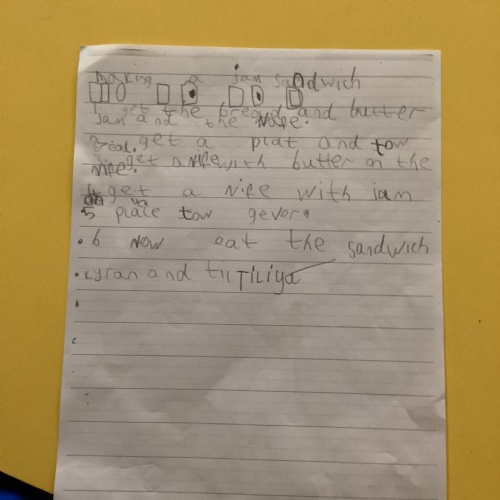 Making a Jam Sandwich
get the bread and butter
Jam and the Nife.
get a plat and tow
get a nife with butter on the
nife.
4 get a Nife with jam
5 place tow gever.
.6 Now eat the sandwich
.Kyran and Tiliya